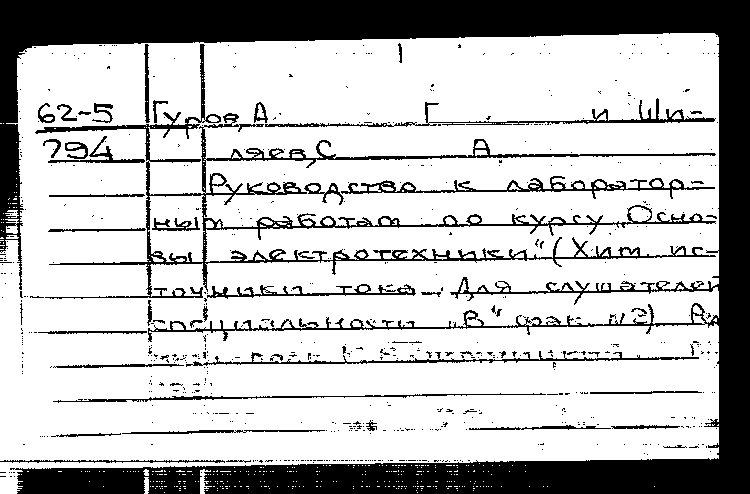 62-5 Гуров, А Г и Ши-
794 ляев, С А
Руководство к лаборатор-
ным работам по курсу „Осно-
вы электротехники." (Хим. ис-
точники тока. Для слушателей
специальности „В" фак. №2)